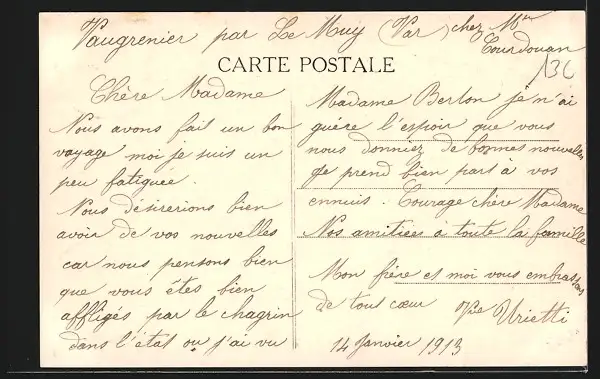 Vaugrenier par Le Muy (Var) chez Mme
Courdouan
13C
CARTE POSTALE
Chère Madame
Nous avons fait un bon
voyage moi je suis un
peu fatiguée.
Nous désirerions bien
avoir de vos nouvelles
car nous pensons bien
que vous êtes bien
affligés par le chagrin
dans l'état ou j'ai vu
Madame Berlon je n'ai
guère l'espoir que vous
nous donniez de bonnes nouvelles
Je prend bien part à vos
ennuis. Courage chère Madame
Nos amitiées à toute la famille
Mon frère et moi vous embrassons
de tout cœur Vve Urietti
14 Janvier 1913